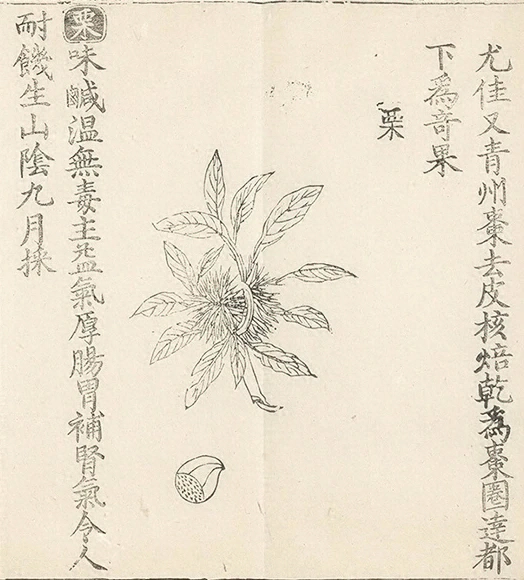 尤佳又青州棗去皮核焙乾為棗圈達都
下爲竒果
栗
栗味鹹温無毒主益氣厚腸胃補腎氣令人
耐饑生山陰九月採